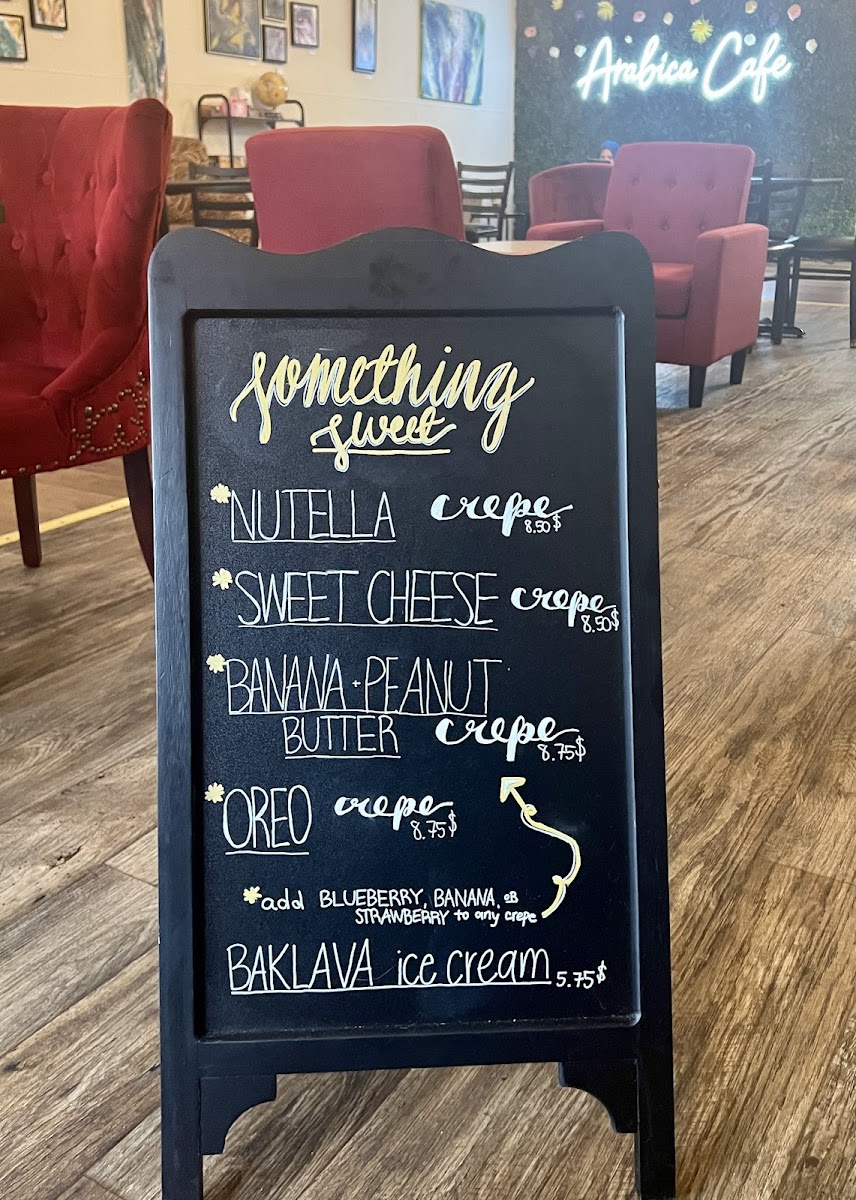 Arabica Cafe
something
sweet
*NUTELLA crepe
8.50$
*SWEET CHEESE crepe
8.50$
*BANANA + PEANUT
BUTTER crepe
8.75$
*OREO crepe
8.75$
*add BLUEBERRY, BANANA, OR
STRAWBERRY to any crepe
BAKLAVA ice cream 5.75$